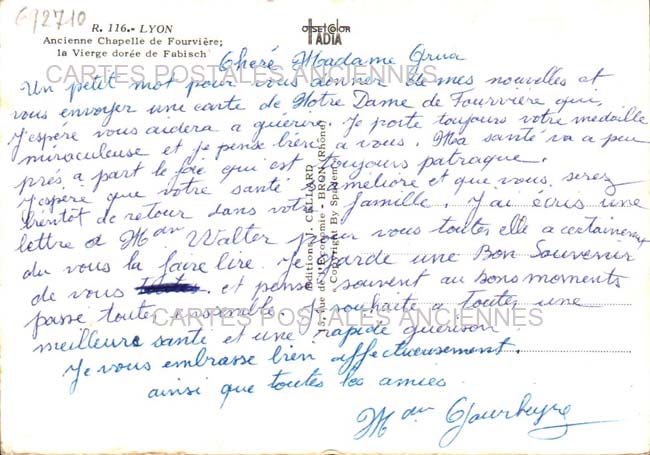 692710
R. 116. - LYON
Ancienne Chapelle de Fourvière;
la Vierge dorée de Fabisch
OFFSETCOLOR
IADIA
CARTES POSTALES ANCIENNES
Cheré Madame
Un petit mot pour vous donner de mes nouvelles et
vous envoyer une carte de Notre Dame de Fourvière qui,
j'espère vous aidera a guerire. Je porte toujours votre medaille
miraculeuse et je pense bien a vous. Ma santé va a peu
prés a part le foie qui est toujours patraque.
J'espère que votre santé améliore et que vous serez
bientôt de retour dans votre famille. J'ai ècris une
lettre a Mdm Walter pour vous toutes elle a certainement
du vous la faire lire. Je garde une Bon Souvenir
de vous et pense souvent au bons moments
passe toute ensemble. Je souhaite a toute une
meilleure santé et une rapide guerison
Je vous embrasse bien affectueusement.
ainsi que toutes les amies
Mdm
Editions J. CELLARD
BRON (Rhône)
Copyright By
CARTES POSTALES ANCIENNES